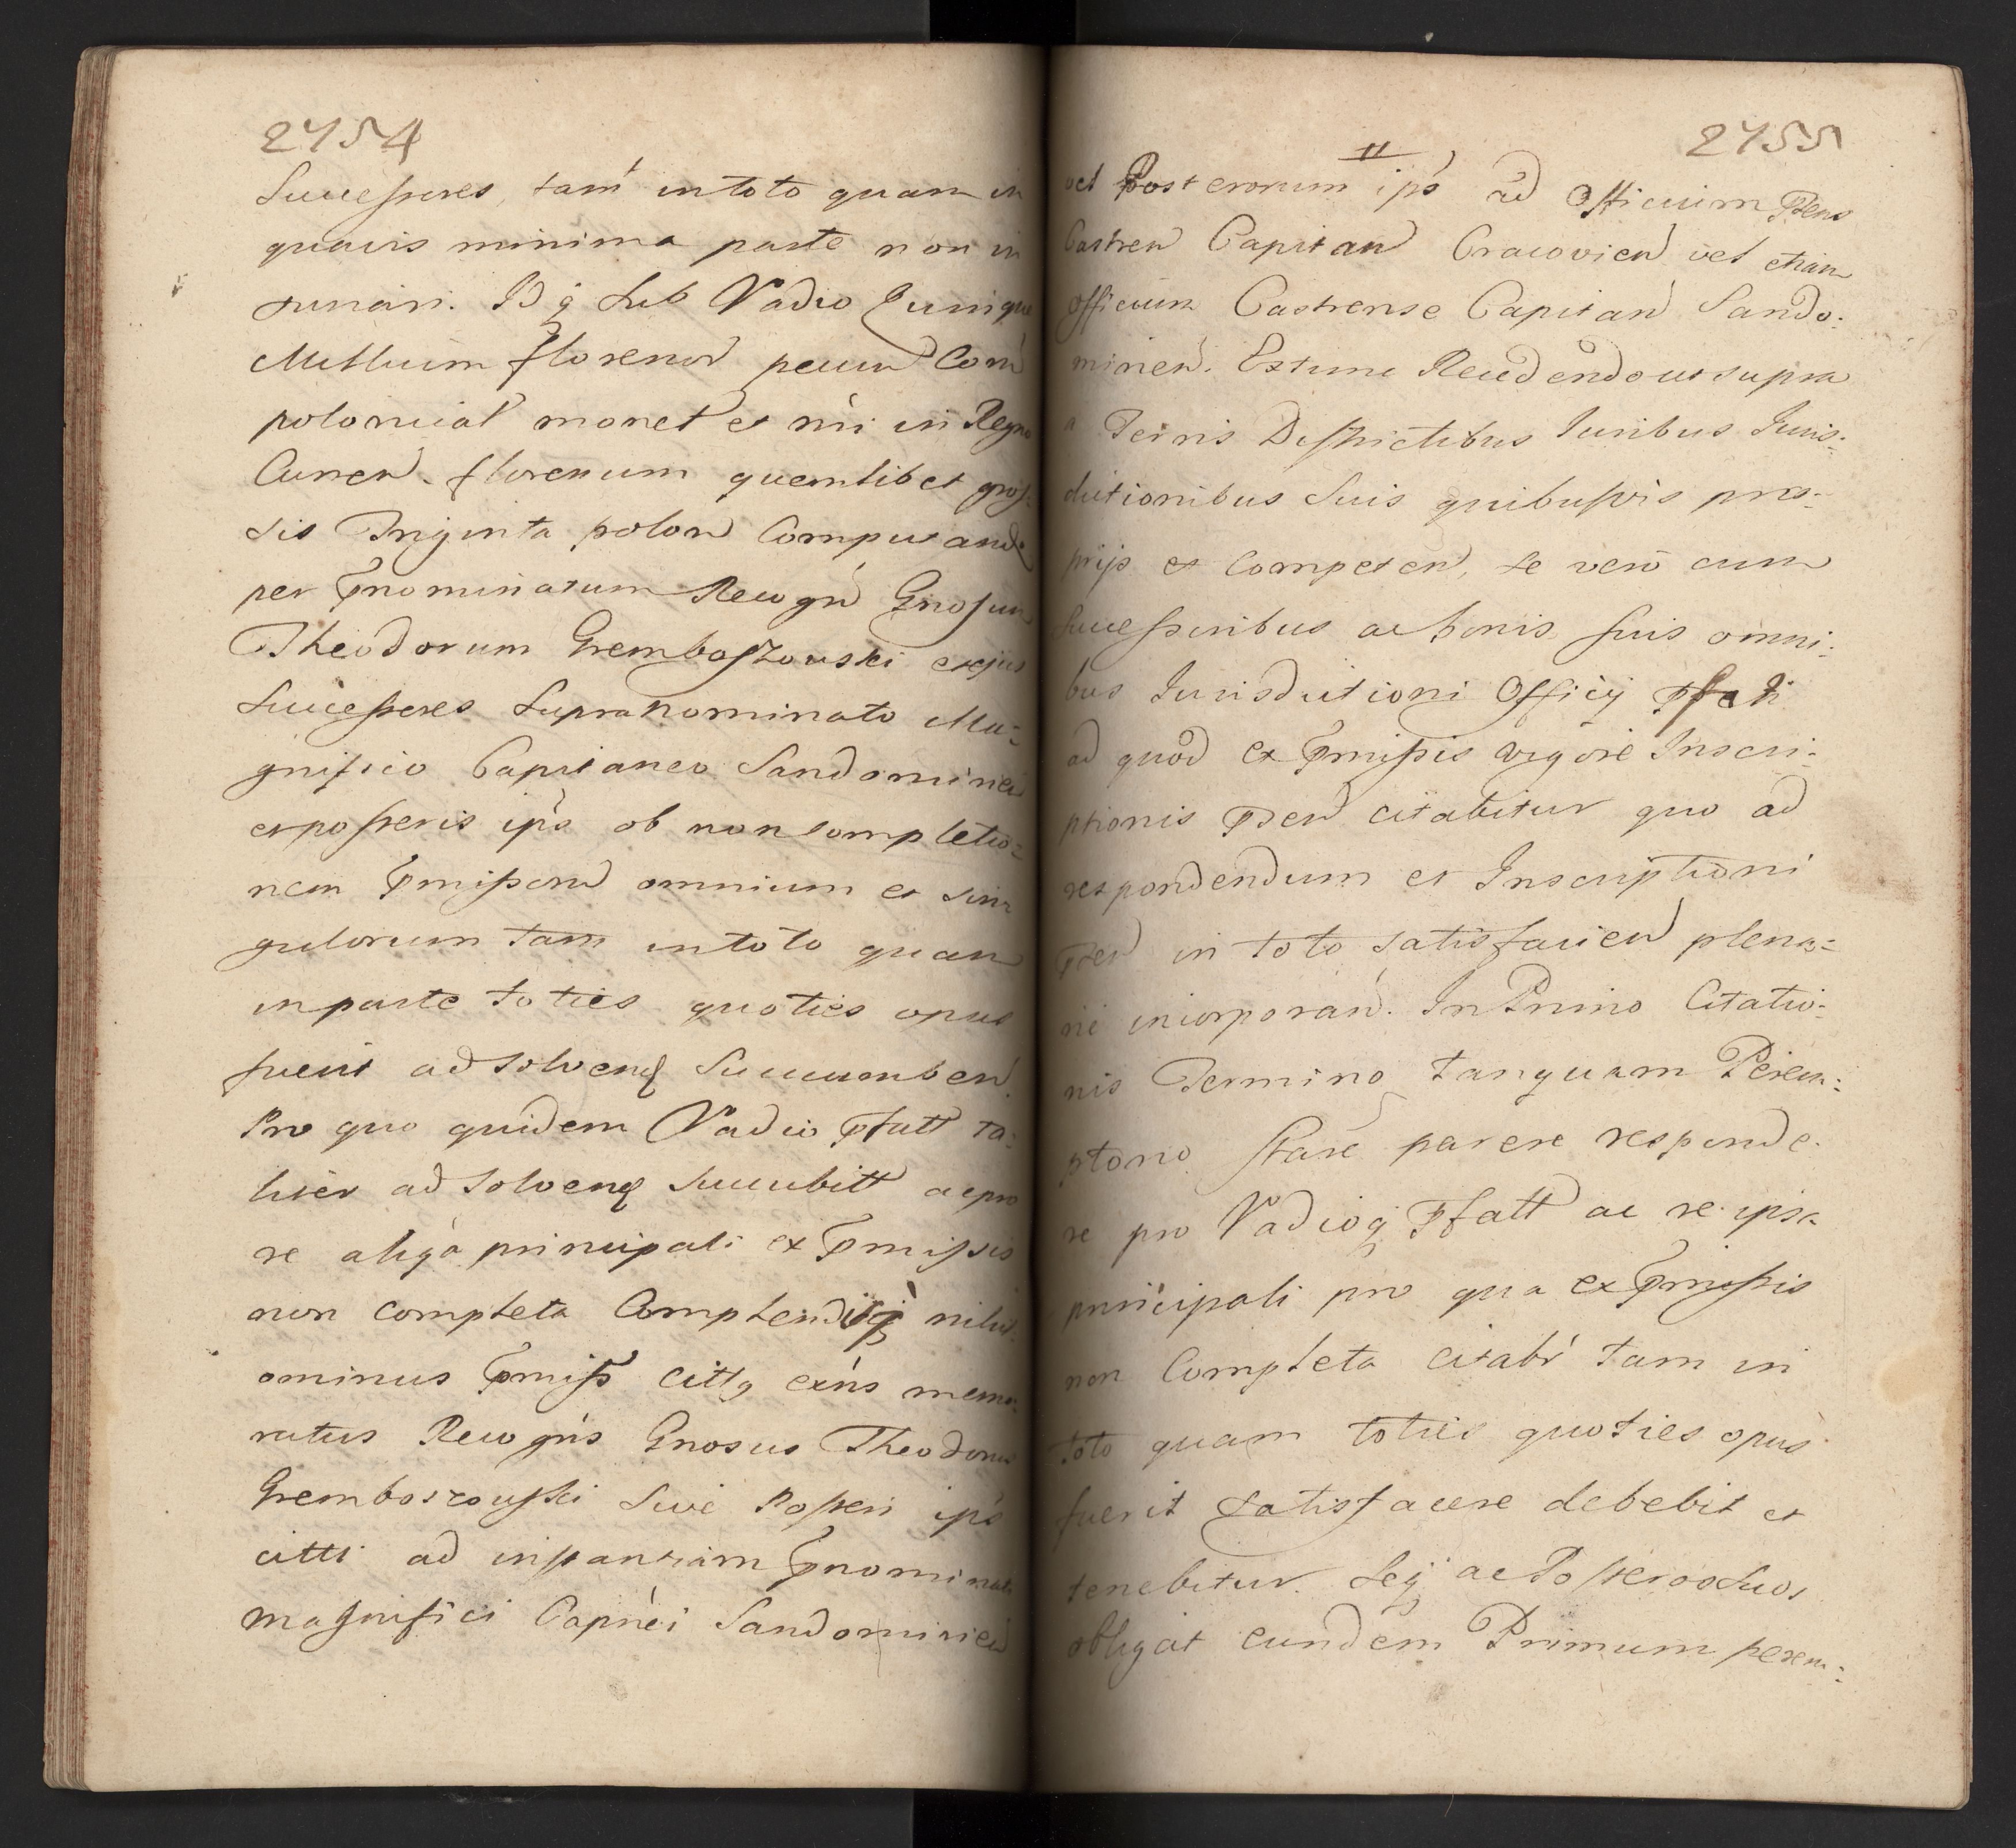 2754
Successores, tam in toto quam in
quavis minima parte non in
junari. Idq sub Vadio Quinque
Millium florenor pecun Com
polonical monet et nri in Regno
Curren. florenum quemlibet gros-
sis Triginta polon Computando
per Pnominatum Recogn Gnosum
Theodorum Gremboszowski et ejus
Successores Supranominato Ma-
gnifico Capitaneo Sandomirien
et posteris ips ob non completio-
nem Pmissorum omnium et sin-
gulorum tam in toto quam
in parte toties quoties opus
fuerit ad solvend Succumben.
Pro quo quidem Vadio Pfatt ta-
liter ad solvend succubitt ac pro
re aliqa principali ex Pmissis
non completa Complendisq nihil-
ominus Pmiss citt exns memo-
ratus Recogns Gnosus Theodorus
Gremboszowski Sive Posteri ips
citti ad instantiam Pnominati
Magnifici Capnei Sandomirien
2755
vel Posterorum ips ad Officium Psens
Castren Capitan Cracovien vel etiam
officium Castrense Capitan Sando-
mirien. Extunc Recedendo ut supra
a Terris Districtibus Iuribus Iuris-
dictionibus Suis quibusvis pro-
prijs et Competen, se vero cum
successoribus ac bonis suis omni-
bus Iurisdictioni Officij Pfati
ad quod ex Pmissis vigore Inscri-
ptionis Psen citabitur quo ad
respondendum et Inscriptioni
Psen in toto satisfacien plena-
rie incorporan. In Primo Citatio-
nis Termino tanquam Perem-
ptorio Stare parere responde-
re pro Vadioq Pfatt ac re ipsa
principali pro qua ex Pmissis
non Completa citabr tam in
toto quam toties quoties opus
fuerit satisfacere debebit et
tenebitur. Seq ac Posteros Suos
obligat eundem Primum perem-